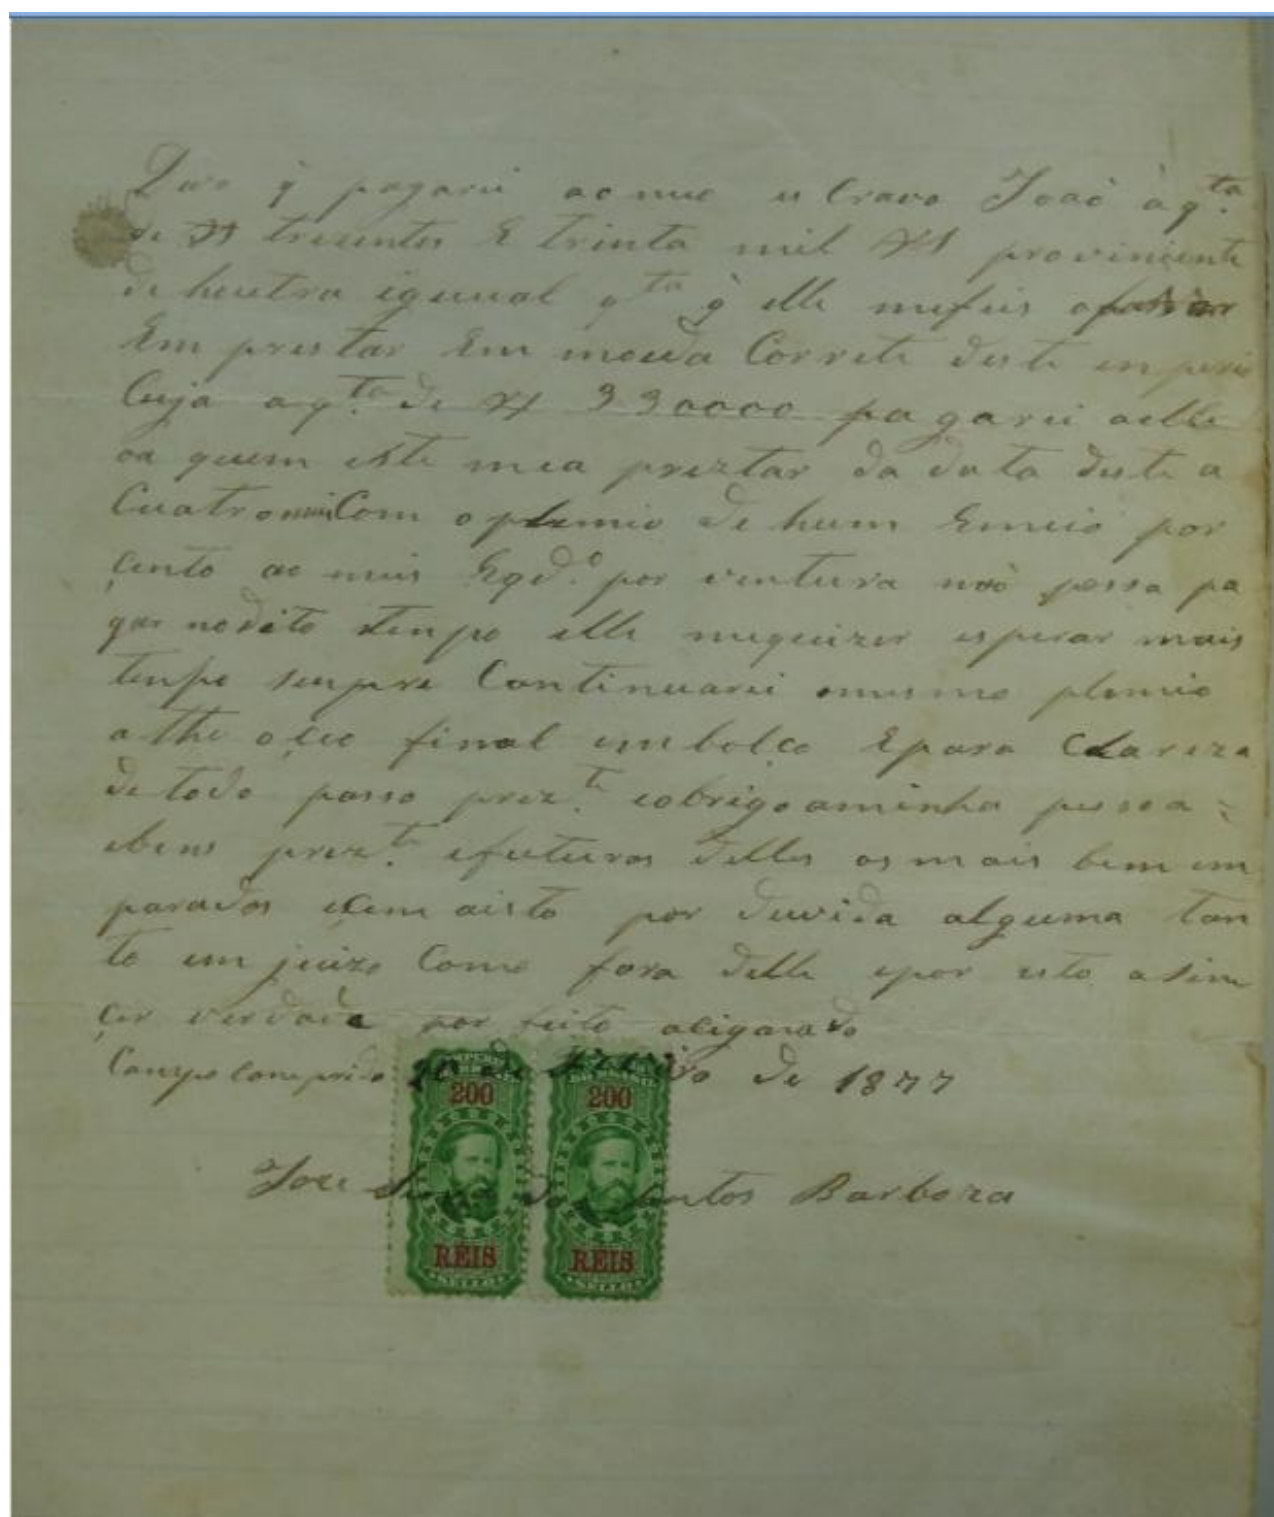 Devo q̃ pagarei ao meu escravo João à q.ta
de R$ trezentos E trinta mil R$ proviniente
de houtra iguual q.ta q̃ elle mefeis ofavor
Em prestar Em moeda Correte deste enperio
Cuja a q.ta de R$ 330000 pagarei aelle
oa quem este mea preztar da data deste a
Cuatro Com o plemio de hum Emeio por
çento ao mes Eqd.o por ventura não possa pa
gar nodito tenpo elle mequizer esperar mais
tenpo senpre Continuarei omesmo plemio
athe o çeo final embolço Epara Clareza
de todo passo prez.te eobrigoaminha pessoa
ebens prez.te efuturos delles os mais bem em
parados eçem aisto por duvida alguma tan
to em juizo Como fora delle epor esto asim
çer verdade por feito
Canpo Conprido de de 1877
Joze dos Santos Barboza
IMPERIO DO BRASIL IMPERIO DO BRASIL
200 200
REIS REIS
SELLO SELLO